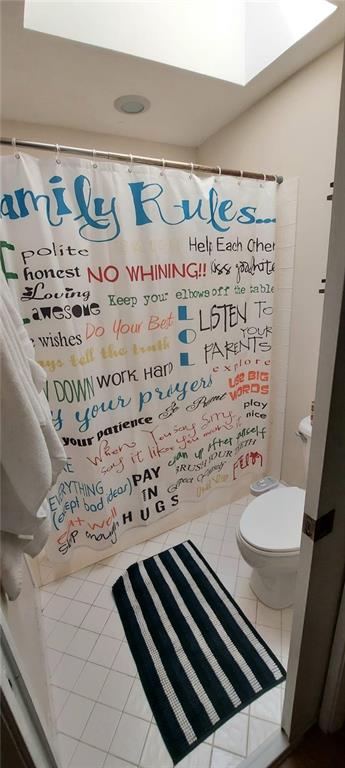 amily Rules...
polite
Help Each Other
honest
NO WHINING!!
Kiss goodnite
Loving
Keep your elbows off the table
awesome
Do Your Best
LOL
LISTEN TO
YOUR
PARENTS
wishes
ays tell the truth
explore
DOWN
WORK HARD
USE BIG
WORDS
your prayers
play
nice
your patience
Be
When You say Sorry,
say it like you mean it
an up after yourself
BRUSH YOUR TEETH
EVERYTHING
(except bad ideas)
PAY
IN
HUGS
Eat Well
Sleep enough